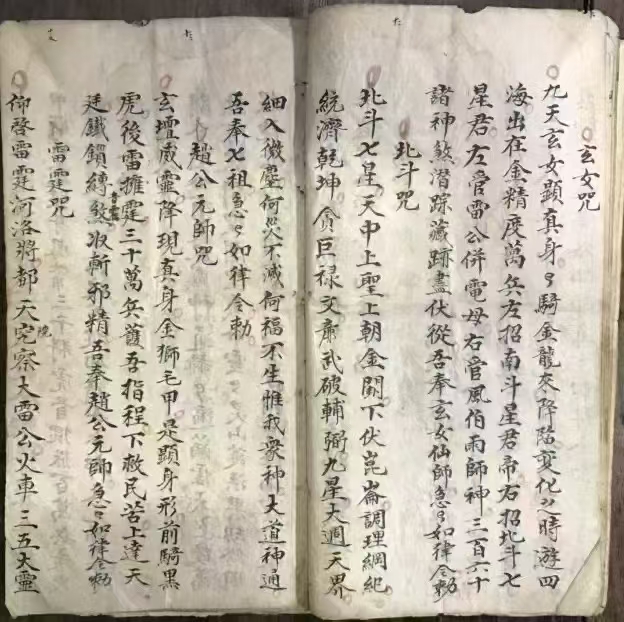 玄女咒
九天玄女顯真身〻騎金龍來降臨变化之時遊四
海出在金精度萬兵左招南斗星君帝右招北斗七
星君左管雷公併電母右管風伯雨師神三百六十
諸神煞潛踪藏跡盡伏從吾奉玄女仙師急〻如律令勅
北斗咒
北斗七星天中上聖上朝金闕下伏崑崙調理綱紀
統濟乾坤貪巨禄文廉武破輔弼九星大週天界
細入微塵何災不滅何福不生惟我衆神大道神通
吾奉七祖急〻如律令勅
趙公元師咒
玄壇威靈降現真身金獅毛甲是顕身形前騎黑
虎後雷擁霆三十萬兵護吾指程下救民苦上達天
廷鐵鎖縛煞收斬邪精吾奉趙公元師急〻如律令勅
雷霆咒
仰啓雷霆河洛將都天究察大雷公火車三五大靈
院